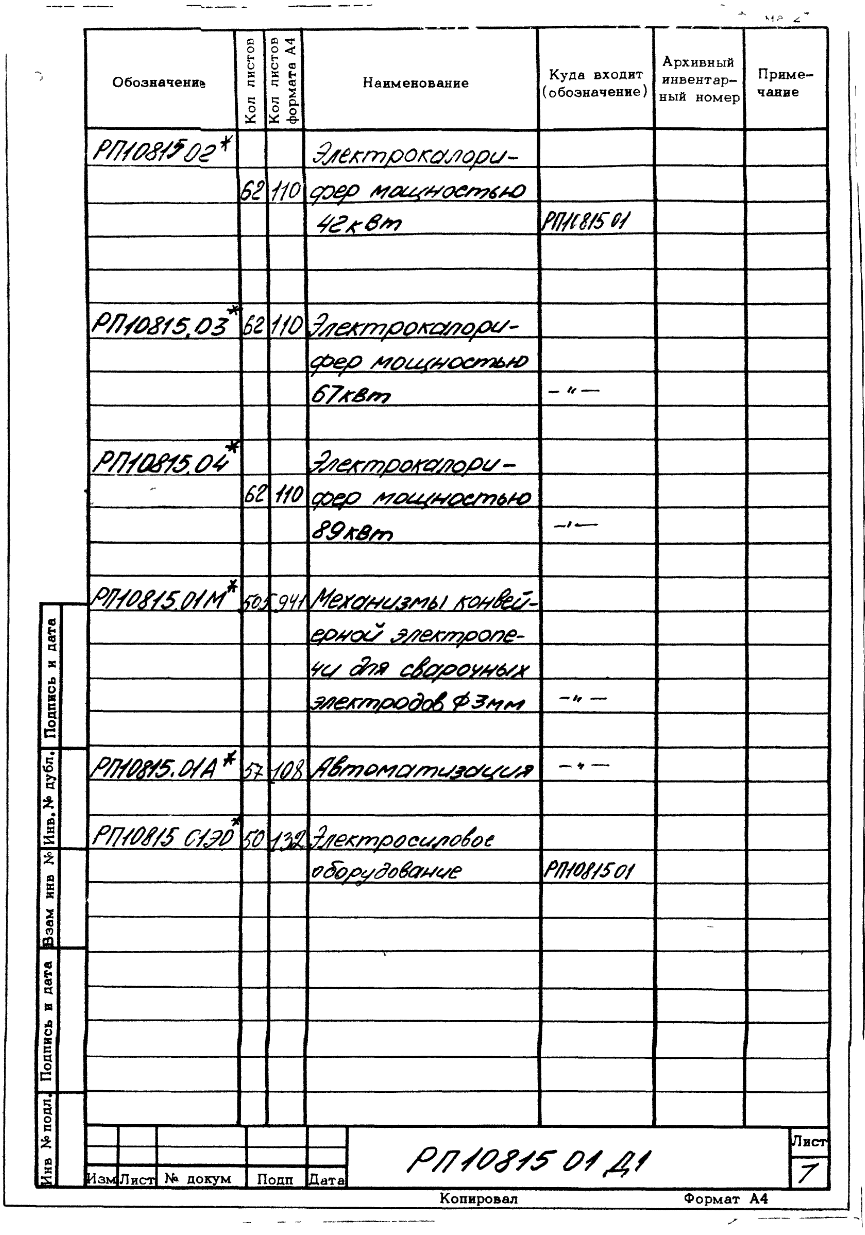 Обозначение Кол листов Кол листов формата А4 Наименование Куда входит (обозначение) Архивный инвентар- ный номер Приме- чание
РП10815 02* Электрокалори-
62 110 фер мощностью
42квт РП10815 01
РП10815.03* 62 110 Электрокалори-
фер мощностью
67квт — " —
РП10815.04* Электрокалори-
62 110 фер мощностью
89квт — " —
РП10815.01М* 505 941 Механизмы конвей-
ерной электропе-
чи для сварочных
электродов Ф3мм — " —
РП10815.01А* 57 108 Автоматизация — " —
РП10815 01ЭО* 50 132 Электросиловое
оборудование РП10815 01
Подпись и дата
Инв. № дубл.
Взам инв №
Подпись и дата
Инв № подл.
Изм Лист № докум Подп Дата
РП10815 01 Д1
Лист
7
Копировал Формат А4